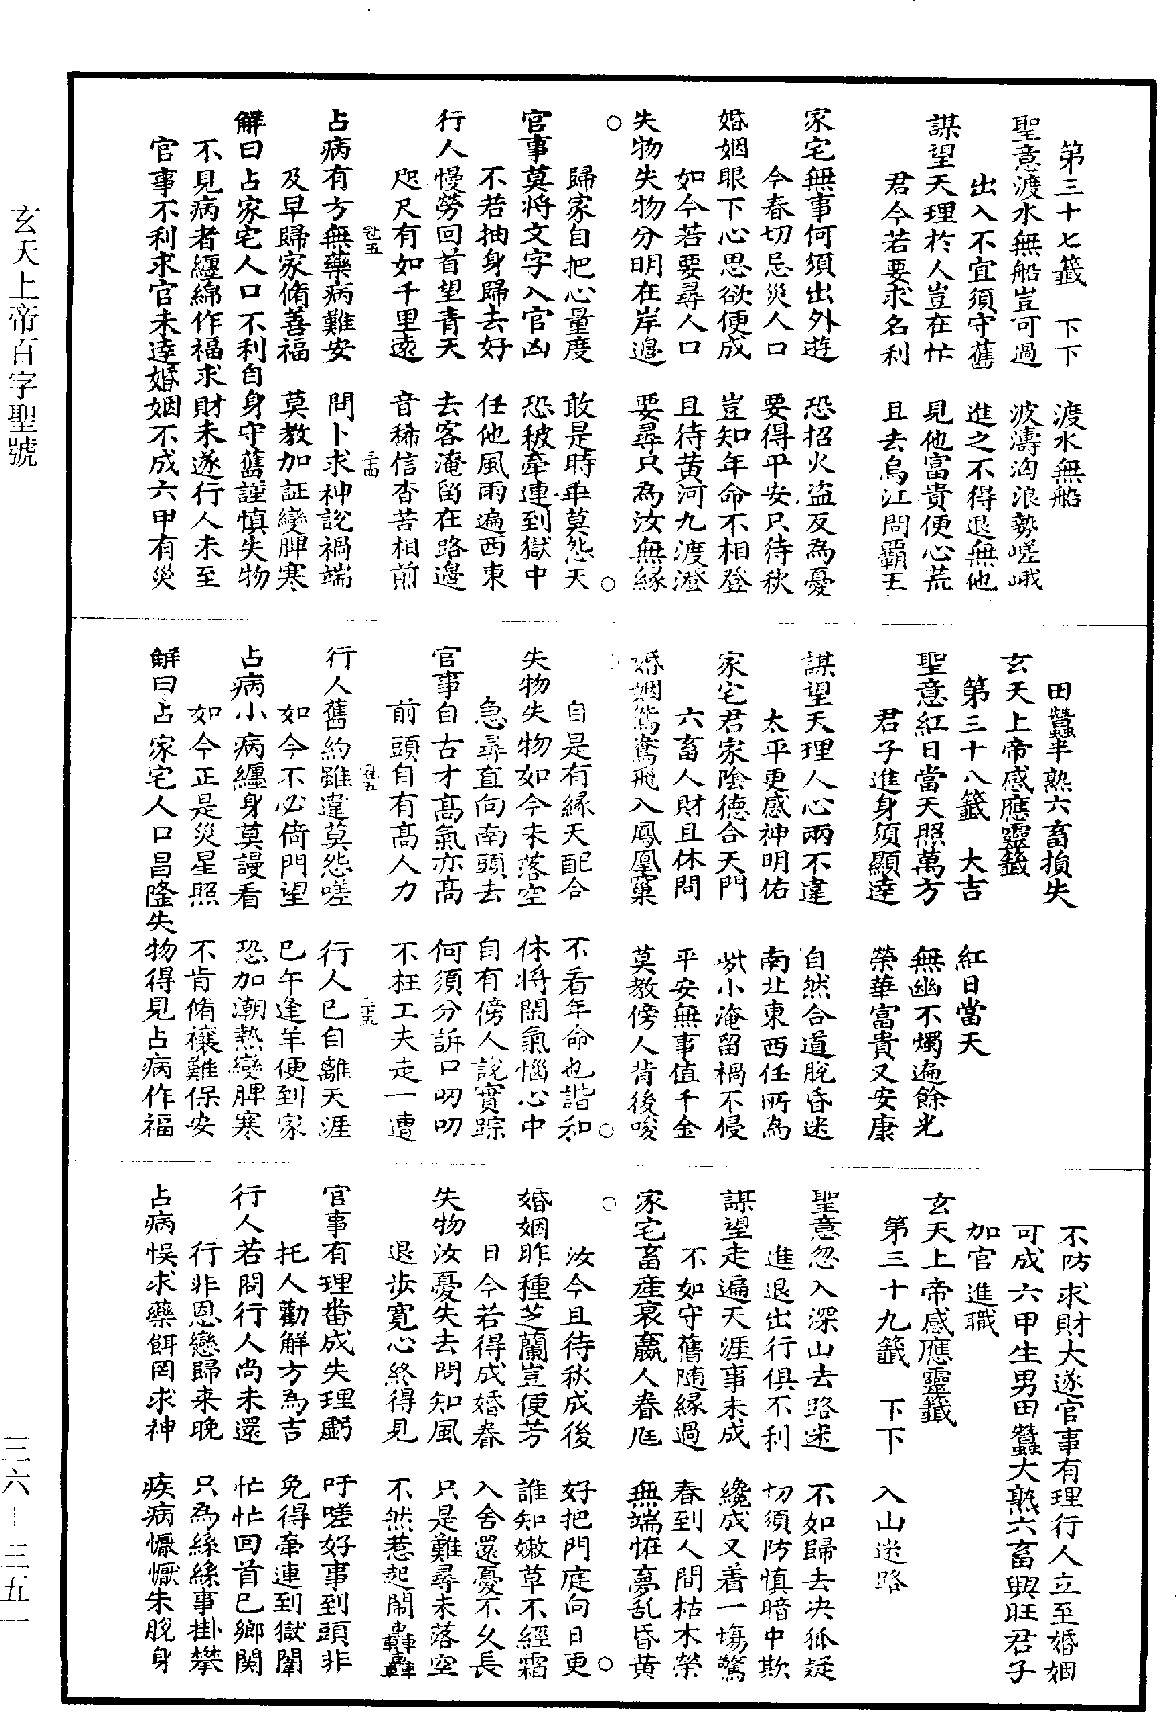 第三十七籤　下下　渡水無船
聖意渡水無船豈可過　波濤洶浪勢嵯峨
出入不宜須守舊　進之不得退無他
謀望天理於人豈在忙　見他富貴便心荒
君今若要求名利　且去烏江問霸王
家宅無事何須出外遊　恐招火盜反為憂
今春切忌災人口　要得平安只待秋
婚姻眼下心思欲便成　豈知年命不相登
如今若要尋人口　且待黃河九渡澄
失物失物分明在岸邊　要尋只為汝無緣
○　○
歸家自把心量度　敢是時乖莫怨天
官事莫將文字入官凶　恐被牽連到獄中
不若抽身歸去好　任他風雨遍西東
行人慢勞回首望青天　去客淹留在路邊
咫尺有如千里遠　音稀信杳苦相前
占病有方無藥病難安　問卜求神說禍端
及早歸家脩善福　莫教加証變脾寒
解曰占家宅人口不利自身守舊謹慎失物
不見病者纏綿作福求財未遂行人未至
官事不利求官未逹婚姻不成六甲有災
田蠶半熟六畜損失
玄天上帝感應靈籤
第三十八籤　大吉　紅日當天
聖意紅日當天照萬方　無幽不燭遍餘光
君子進身須顯達　榮華富貴又安康
謀望天理人心兩不違　自然合道脫昏迷
太平更感神明佑　南北東西任所為
家宅君家陰德合天門　些小淹留禍不侵
六畜人財且休問　平安無事值千金
婚姻鴛鴦飛入鳳凰窠　莫教傍人背後唆
○
自是有緣天配合　不看年命也諧和
失物失物如今未落空　休將閙氣惱心中
急尋直向南頭去　自有傍人說實踪
官事自古才高氣亦高　何須分訴口叨叨
前頭自有高人力　不枉工夫走一遭
行人舊約雖違莫怨嗟　行人已自離天涯
如今不必倚門望　巳午逢羊便到家
占病小病纏身莫謾看　恐加潮熱變脾寒
如今正是災星照　不肯脩禳難保安
解曰占家宅人口昌隆失物得見占病作福
不防求財大遂官事有理行人立至婚姻
可成六甲生男田蠶大熟六畜興旺君子
加官進職
玄天上帝感應靈籤
第三十九籤　下下　入山迷路
聖意忽入深山去路迷　不如歸去決狐疑
進退出行俱不利　切須防慎暗中欺
謀望走遍天涯事未成　纔成又着一塲驚
不如守舊隨緣過　春到人間枯木榮
家宅畜產衰羸人眷尫　無端怪夢乱昏黃
○　○
汝今且待秋成後　好把門庭向日更
婚姻昨種芝蘭豈便芳　誰知嫩草不經霜
日今若得成婚眷　入舍還憂不久長
失物汝憂失去問知風　只是難尋未落空
退步寬心終得見　不然惹起鬧轟轟
官事有理番成失理虧　吁嗟好事到頭非
托人勸解方為吉　免得牽連到獄闈
行人若問行人尚未還　忙忙回首已鄉関
行非恩戀歸来晚　只為絲絲事掛攀
占病悞求藥餌罔求神　疾病懨懨未脫身
玄天上帝百字聖號
三六—三五一